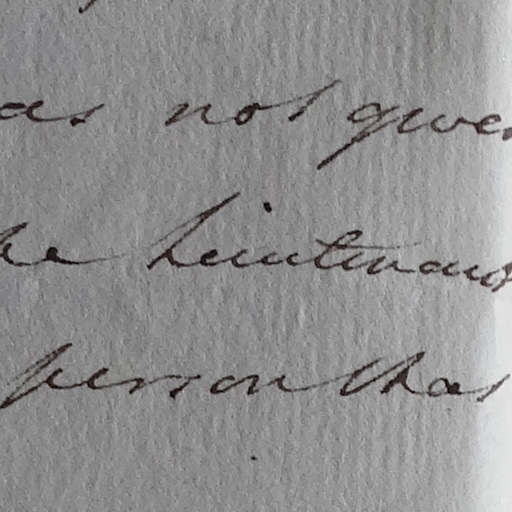 as not given
he Lieutenant
person that